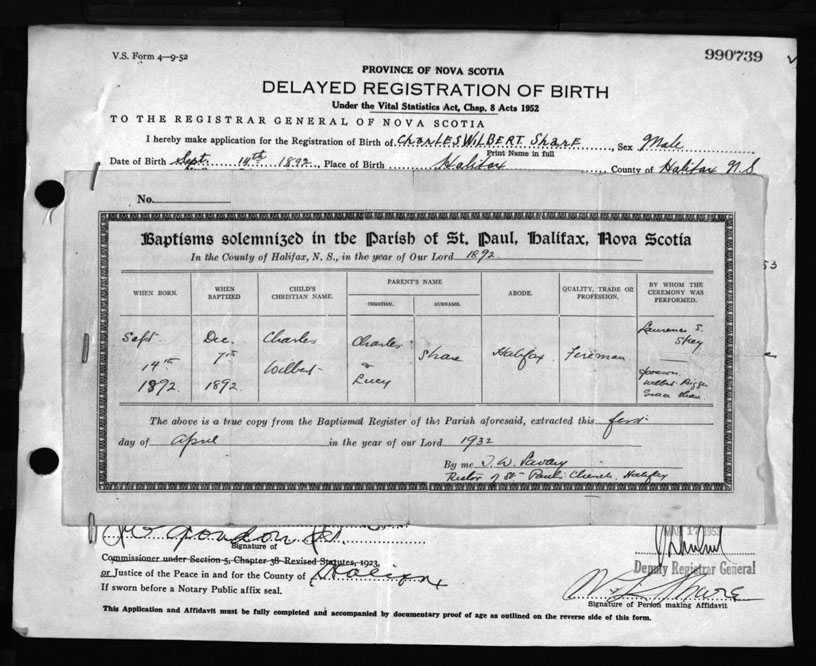 V.S. Form 4—9-52
990739
PROVINCE OF NOVA SCOTIA
DELAYED REGISTRATION OF BIRTH
Under the Vital Statistics Act, Chap. 8 Acts 1952
TO THE REGISTRAR GENERAL OF NOVA SCOTIA
I hereby make application for the Registration of Birth of CHARLES WILBERT Share, Sex Male
Print Name in full
Date of Birth Sept. 14th 1892, Place of Birth Halifax County of Halifax N.S
No.
53
Baptisms solemnized in the Parish of St. Paul, Halifax, Nova Scotia
In the County of Halifax, N. S., in the year of Our Lord 1892
WHEN BORN. WHEN BAPTIZED CHILD'S CHRISTIAN NAME. PARENT'S NAME CHRISTIAN. SURNAME. ABODE. QUALITY, TRADE OR PROFESSION. BY WHOM THE CEREMONY WAS PERFORMED.
Sept. Dec. Charles Charles Share Halifax. Fireman
14th 7th Wilbert &
1892 1892. Lucy
The above is a true copy from the Baptismal Register of the Parish aforesaid, extracted this first
day of April in the year of our Lord 1932
By me T. W. Savary
Rector of St Paul's Church, Halifax
Signature of
Commissioner under Section 5, Chapter 38 Revised Statutes, 1923,
or Justice of the Peace in and for the County of Halifax
If sworn before a Notary Public affix seal.
Deputy Registrar General
Signature of Person making Affidavit
This Application and Affidavit must be fully completed and accompanied by documentary proof of age as outlined on the reverse side of this form.